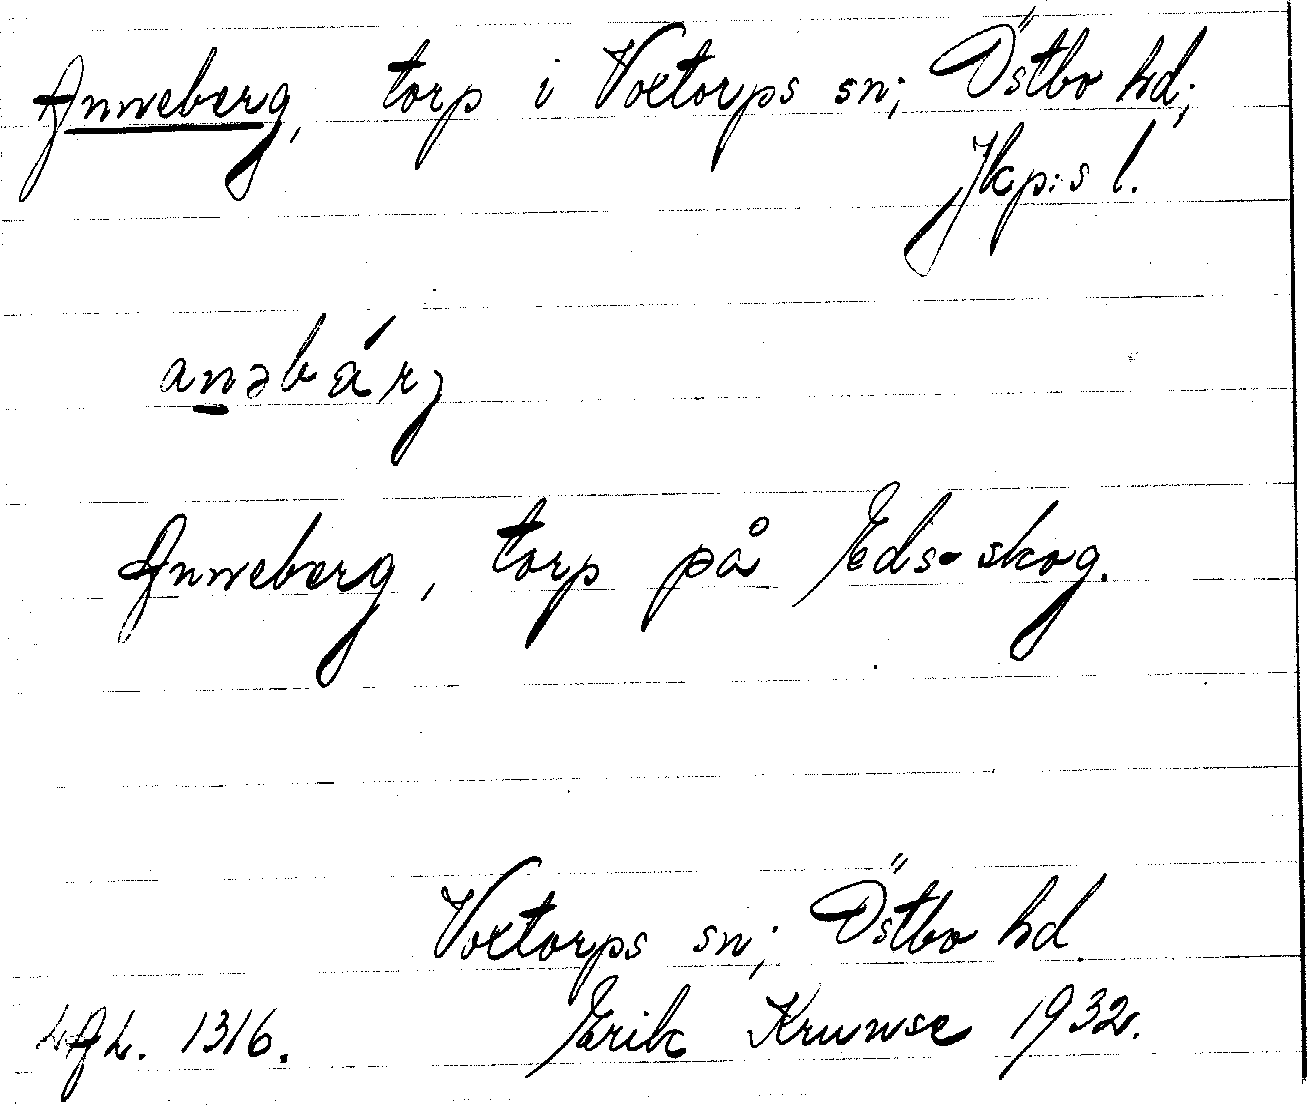 Anneberg, torp i Voxtorps sn; Östbo hd;
Jkp:s l.
anəbárj
Anneberg, torp på Eds-skog.
Voxtorps sn; Östbo hd.
1316. Erik Krunse 1932.